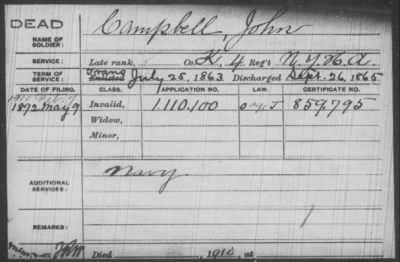 DEAD
NAME OF SOLDIER: Campbell, John
SERVICE: Late rank, Co. K, 4 Reg't N.Y.H.A.
TERM OF SERVICE: Enlisted July 25, 1863 Discharged Sept. 26, 1865
DATE OF FILING. CLASS. APPLICATION NO. LAW. CERTIFICATE NO.
1892 May 9 Invalid, 1.110.100 859.795
Widow,
Minor,
ADDITIONAL SERVICES: Navy
REMARKS:
Died 1910, at